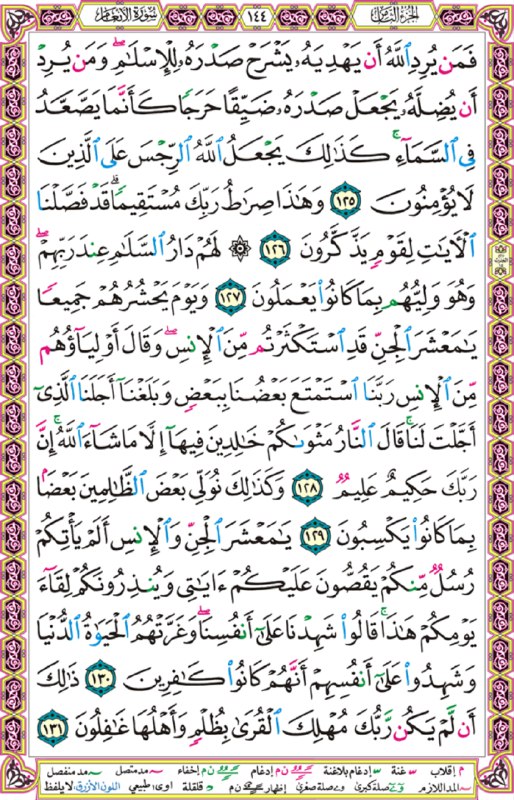 الجزء الثامن ١٤٤ سورة الأنعام
فَمَن يُرِدِ ٱللَّهُ أَن يَهْدِيَهُۥ يَشْرَحْ صَدْرَهُۥ لِلْإِسْلَٰمِ ۖ وَمَن يُرِدْ
أَن يُضِلَّهُۥ يَجْعَلْ صَدْرَهُۥ ضَيِّقًا حَرَجًا كَأَنَّمَا يَصَّعَّدُ
فِى ٱلسَّمَآءِ ۚ كَذَٰلِكَ يَجْعَلُ ٱللَّهُ ٱلرِّجْسَ عَلَى ٱلَّذِينَ
لَا يُؤْمِنُونَ ١٢٥ وَهَٰذَا صِرَٰطُ رَبِّكَ مُسْتَقِيمًا ۗ قَدْ فَصَّلْنَا
ٱلْءَايَٰتِ لِقَوْمٍ يَذَّكَّرُونَ ١٢٦ ۞ لَهُمْ دَارُ ٱلسَّلَٰمِ عِندَ رَبِّهِمْ ۖ
وَهُوَ وَلِيُّهُم بِمَا كَانُوا۟ يَعْمَلُونَ ١٢٧ وَيَوْمَ يَحْشُرُهُمْ جَمِيعًا
يَٰمَعْشَرَ ٱلْجِنِّ قَدِ ٱسْتَكْثَرْتُم مِّنَ ٱلْإِنسِ ۖ وَقَالَ أَوْلِيَآؤُهُم
مِّنَ ٱلْإِنسِ رَبَّنَا ٱسْتَمْتَعَ بَعْضُنَا بِبَعْضٍ وَبَلَغْنَآ أَجَلَنَا ٱلَّذِىٓ
أَجَّلْتَ لَنَا ۚ قَالَ ٱلنَّارُ مَثْوَىٰكُمْ خَٰلِدِينَ فِيهَآ إِلَّا مَا شَآءَ ٱللَّهُ ۗ إِنَّ
رَبَّكَ حَكِيمٌ عَلِيمٌ ١٢٨ وَكَذَٰلِكَ نُوَلِّى بَعْضَ ٱلظَّٰلِمِينَ بَعْضًۢا
بِمَا كَانُوا۟ يَكْسِبُونَ ١٢٩ يَٰمَعْشَرَ ٱلْجِنِّ وَٱلْإِنسِ أَلَمْ يَأْتِكُمْ
رُسُلٌ مِّنكُمْ يَقُصُّونَ عَلَيْكُمْ ءَايَٰتِى وَيُنذِرُونَكُمْ لِقَآءَ
يَوْمِكُمْ هَٰذَا ۚ قَالُوا۟ شَهِدْنَا عَلَىٰٓ أَنفُسِنَا ۖ وَغَرَّتْهُمُ ٱلْحَيَوٰةُ ٱلدُّنْيَا
وَشَهِدُوا۟ عَلَىٰٓ أَنفُسِهِمْ أَنَّهُمْ كَانُوا۟ كَٰفِرِينَ ١٣٠ ذَٰلِكَ
أَن لَّمْ يَكُن رَّبُّكَ مُهْلِكَ ٱلْقُرَىٰ بِظُلْمٍ وَأَهْلُهَا غَٰفِلُونَ ١٣١
م إقلاب س غنة س إدغام بلاغنة ن م إدغام ن م إخفاء مد متصل مد منفصل
المد اللازم صلة كبرى صلة صغرى إظهار ن م قلقلة اوى: طبيعي اللون الأزرق: لا يلفظ